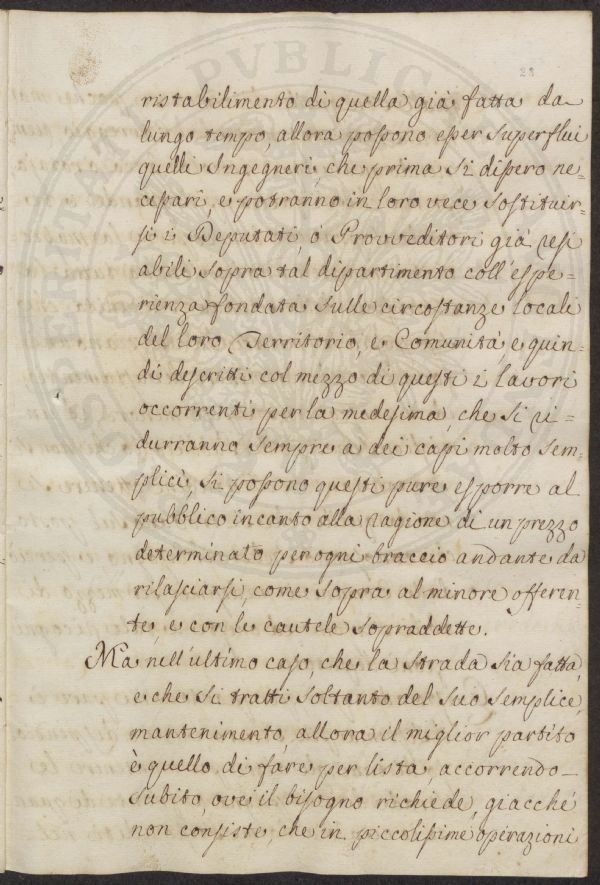 28
ristabilimento di quella già fatta da
lungo tempo, allora possono esser superflui
quelli Ingegneri, che prima si dissero ne=
cessarî, e potranno in loro vece sostituir=
si i Deputati, o Provveditori già resi
abili sopra tal dipartimento coll'espe=
rienza fondata sulle circostanze locali
del loro Territorio, e Comunità, e quin=
di descritti col mezzo di questi i lavori
occorrenti per la medesima, che si ri=
durranno sempre a dei capi molto sem=
plici, si possono questi pure esporre al
pubblico incanto alla ragione di un prezzo
determinato per ogni braccio andante da
rilasciarsi, come sopra al minore offeren=
te, e con le cautele sopraddette.
Ma nell'ultimo caso, che la strada sia fatta,
e che si tratti soltanto del suo semplice
mantenimento, allora il miglior partito
è quello di fare per lista, accorrendo
subito, ove il bisogno richiede, giacché
non consiste, che in piccolissime operazioni